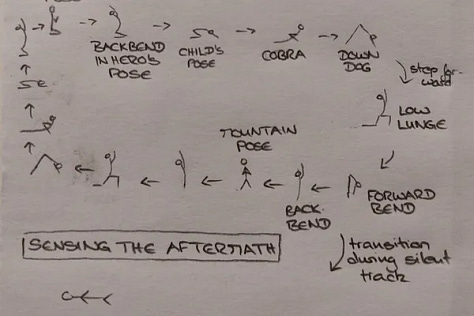 BACKBEND
IN HERO'S
POSE
CHILD'S
POSE
COBRA
DOWN
DOG
step for-
ward
LOW
LUNGE
MOUNTAIN
POSE
BACK-
BEND
FORWARD
BEND
SENSING THE AFTERMATH
transition
during silent
track